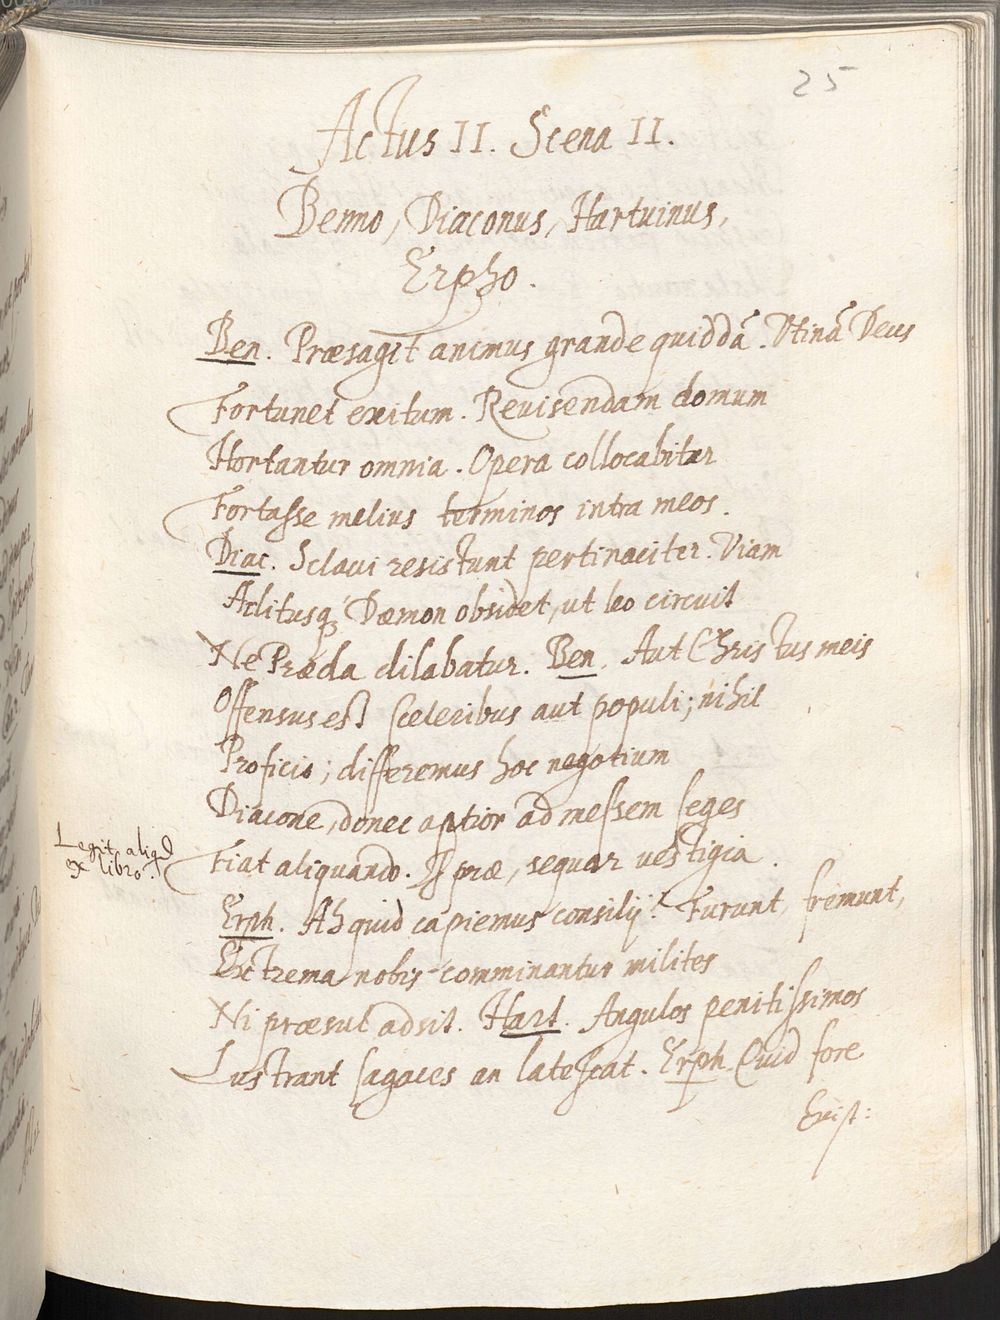 25
Actus II. Scena II.
Benno, Diaconus, Hartuinus,
Erpho.
Ben. Præsagit animus grande quiddã. Vtinã Deus
Fortunet exitum. Reuisendam domum
Hortantur omnia. Opera collocabitur
Fortasse melius terminos intra meos.
Diac. Sclaui resistunt pertinaciter. Viam
Aditusq; Dæmon obsidet, ut leo circuit
Ne Præda dilabatur. Ben. Aut Christus meis
Offensus est sceleribus aut populi; nihil
Proficio; differemus hoc negotium
Diacone, donec aptior ad messem seges
Legit aliqd
ex libro.
Fiat aliquando. I præ, sequar vestigia.
Erph. Ah quid capiemus consilij? Furunt, fremunt,
Extrema nobis comminantur milites
Ni præsul adsit. Hart. Angulos penitissimos
Lustrant sagaces an latescat. Erph. Quid fore